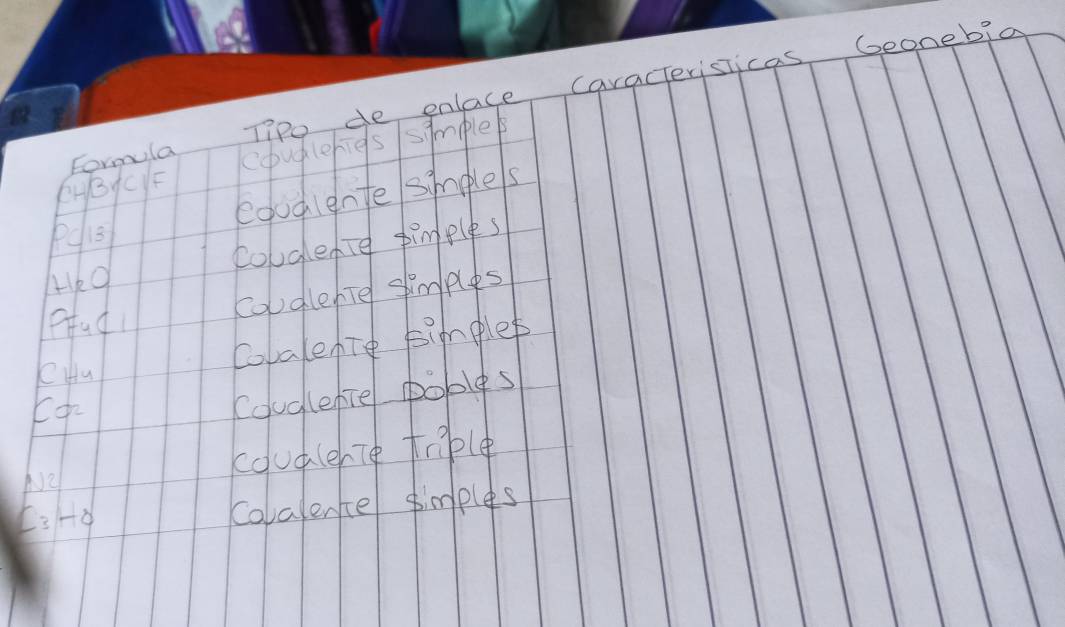 Formula Tipo de enlace Caracteristicas Geonebia
CHBrClF Covalentes simples
PCl3 Covalente simples
H2O Covalente simples
PF4Cl Covalente simples
CH4 Covalente simples
CO2 Covalente Dobles
N2 Covalente Triple
C3H8 Covalente simples